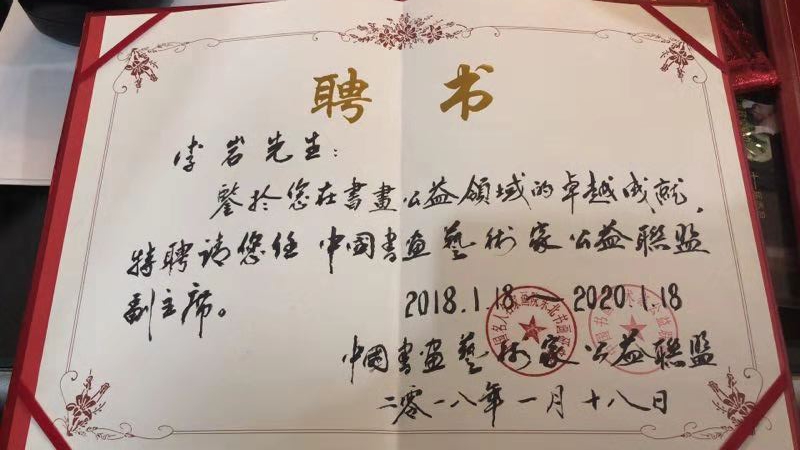 聘 书
李岩先生：
鑒於您在書畫公益領域的卓越成就，
特聘請您任 中國書画藝術家公益聯盟
副主席。 2018.1.18 — 2020.1.18
中國書画藝術家公益聯盟
二零一八年一月十八日